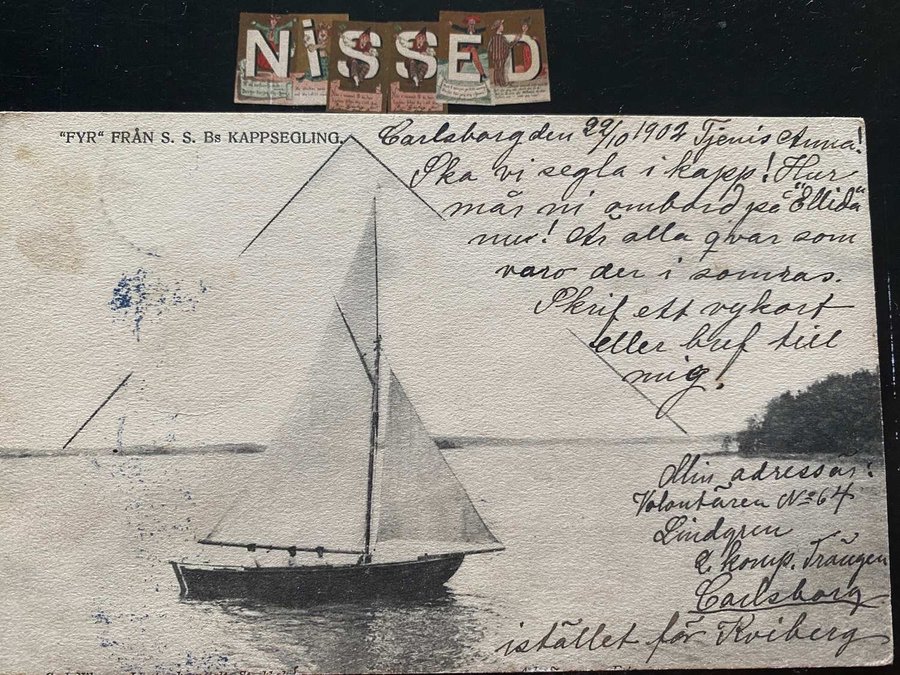 NiSSED
"FYR" FRÅN S. S. Bs KAPPSEGLING.
Carlsborg den 22/10 1902 Tjenis Anna!
Ska vi segla i kapp! Hur
mår ni ombord på "Ellida"
nu! Är alla qvar som
varo der i somras.
Skrif ett vykort
eller bref till
mig!
Min adress är:
Volontären No 64
Lindgren
2. komp. Trängen
Carlsborg
istället för Kviberg